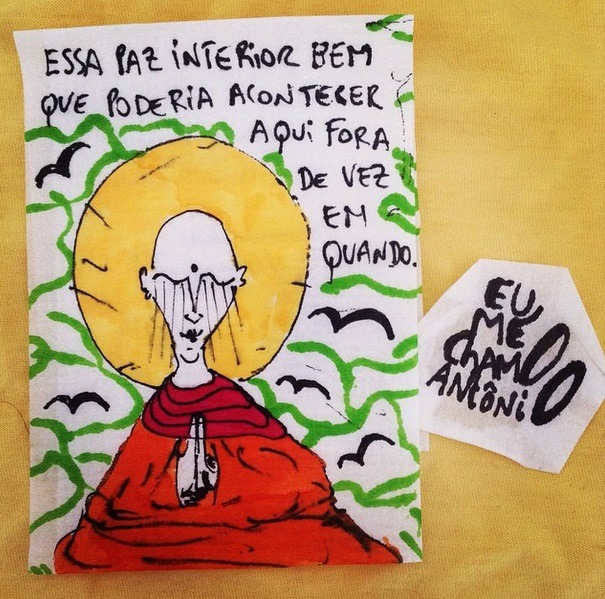 ESSA PAZ INTERIOR BEM
QUE PODERIA ACONTECER
AQUI FORA
DE VEZ
EM
QUANDO.
EU
ME
CHAMO
ANTÔNIO